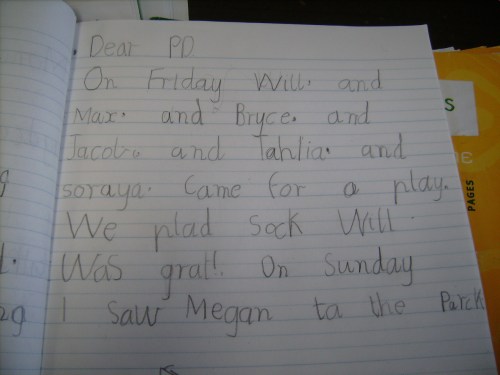 Dear PD
On Friday Will. and
Max. and Bryce. and
Jacob. and Tahlia. and
soraya. Came for a play.
We plad Sock Will.
Was grat!. On Sunday
I Saw Megan ta the Parck
PAGES